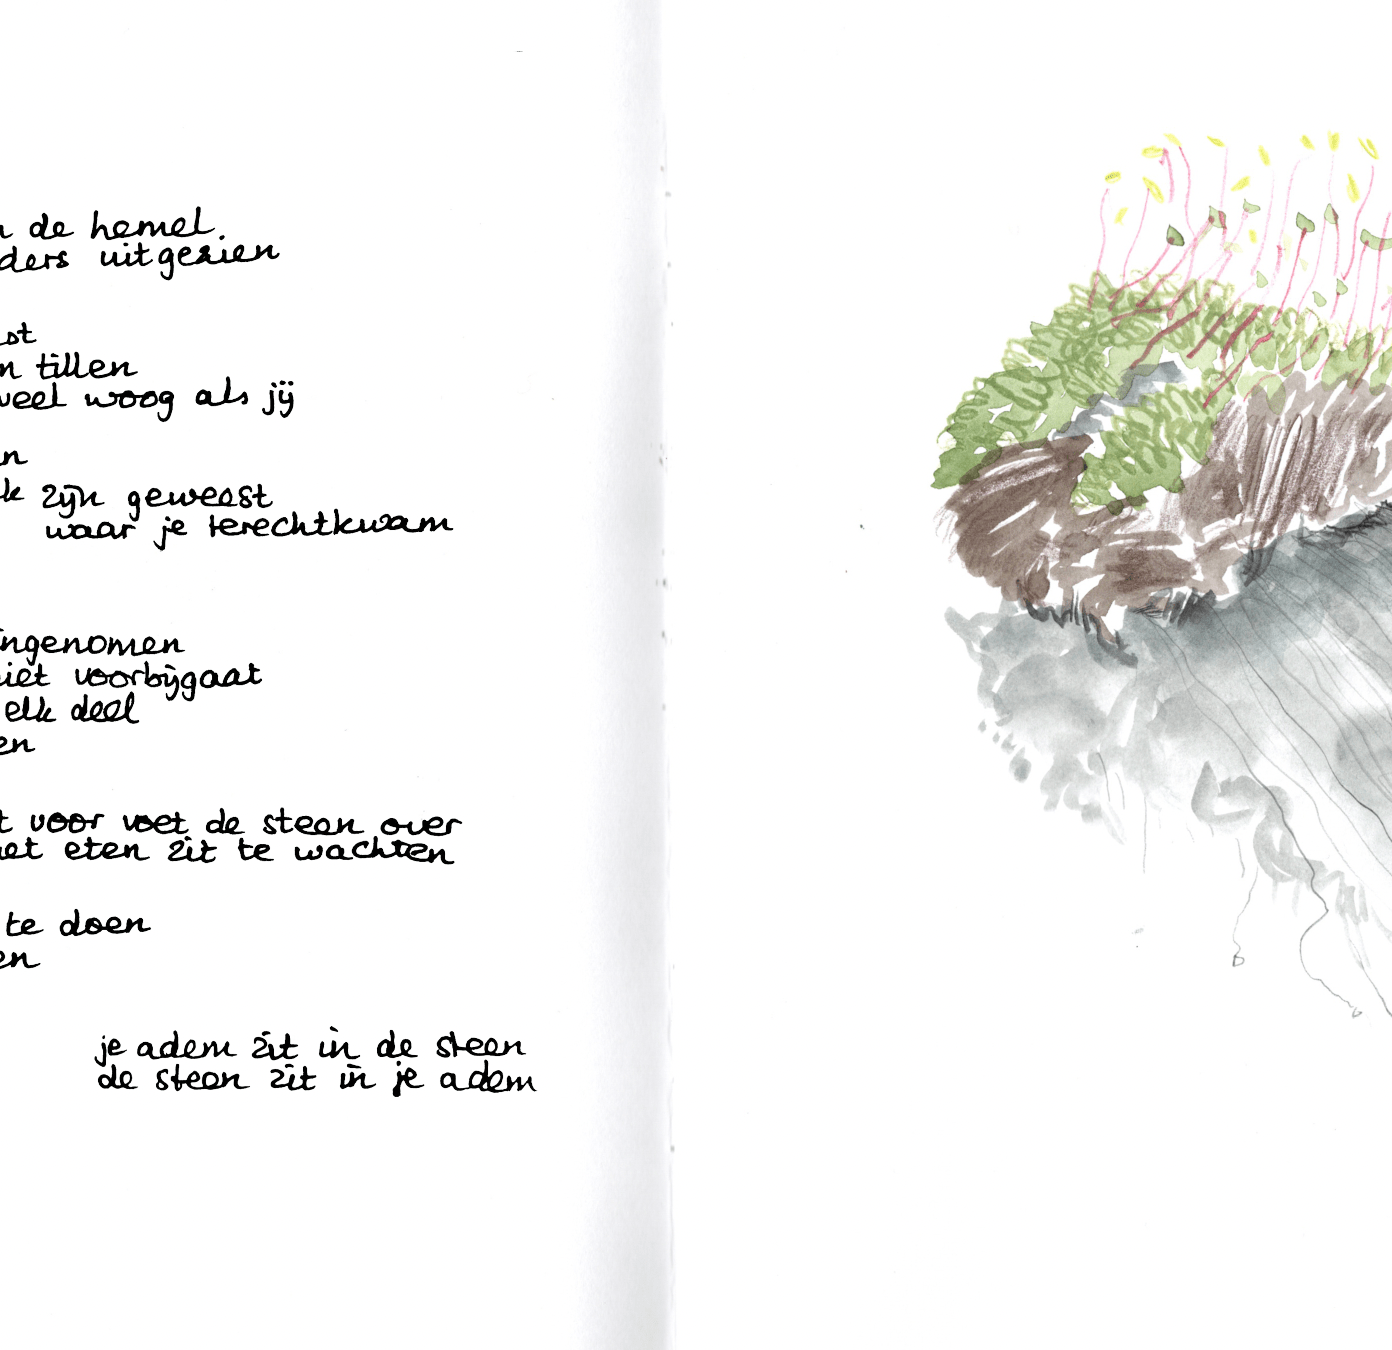 de hemel.
uitgezien
tillen
woog als jij
zijn geweest
waar je terechtkwam
ingenomen
voorbijgaat
elk deel
voor voet de steen over
eten zit te wachten
te doen
je adem zit in de steen
de steen zit in je adem